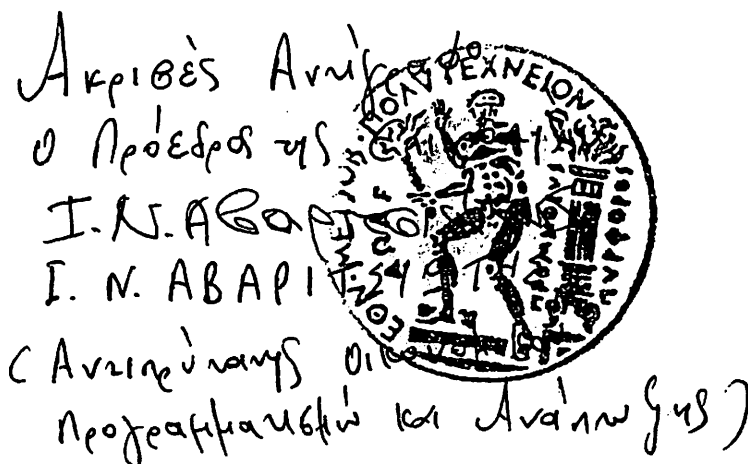 Ακριβές Αντίγραφο
Ο Πρόεδρος της
Ι.Ν. Αβαριτσιώτης
Ι. Ν. ΑΒΑΡΙΤΣΙΩΤΗΣ
(Αντιπρύτανης Οικον.
Προγραμματισμού και Ανάπτυξης)
ΕΘΝ. ΜΕΤΣΟΒ. ΠΟΛΥΤΕΧΝΕΙΟΝ
ΠΡΟΜΗΘΕΥΣ
ΠΥΡΦΟΡΟΣ